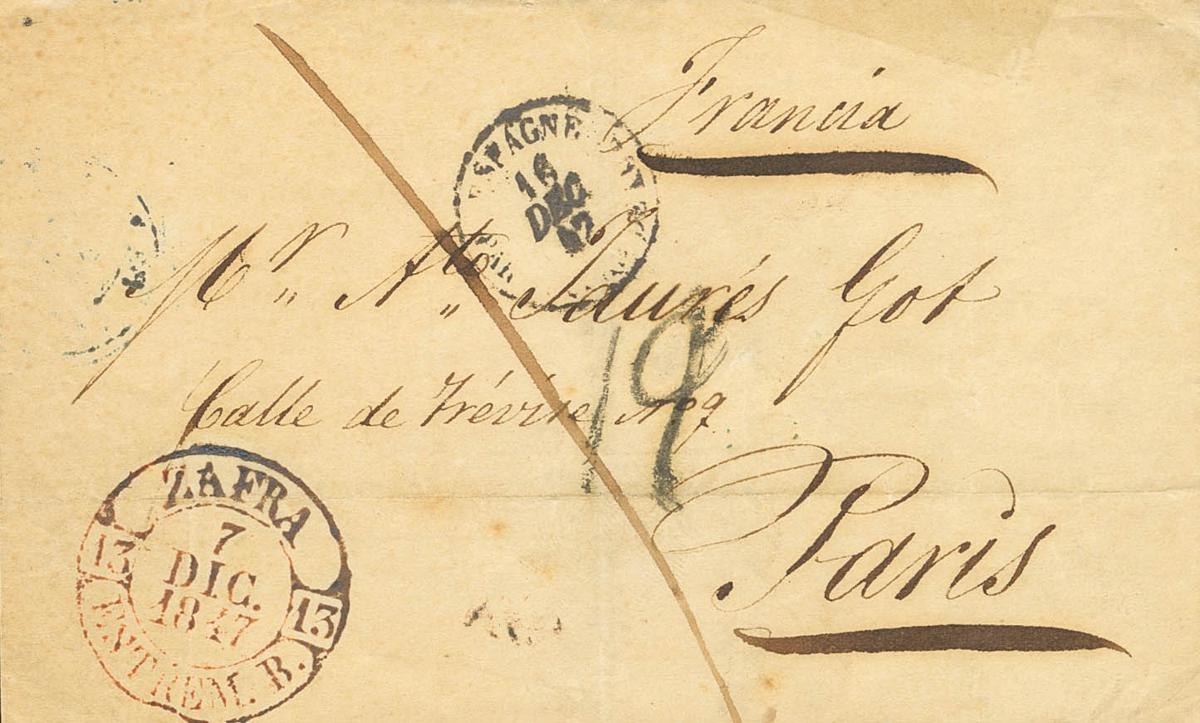 Francia
ESPAGNE
16
DEC
47
Mr. Ato. Jaurés Got
19
Calle de Trévise No 9
Paris
ZAFRA
7
DIC.
1847
13 13
ENTREM. B.